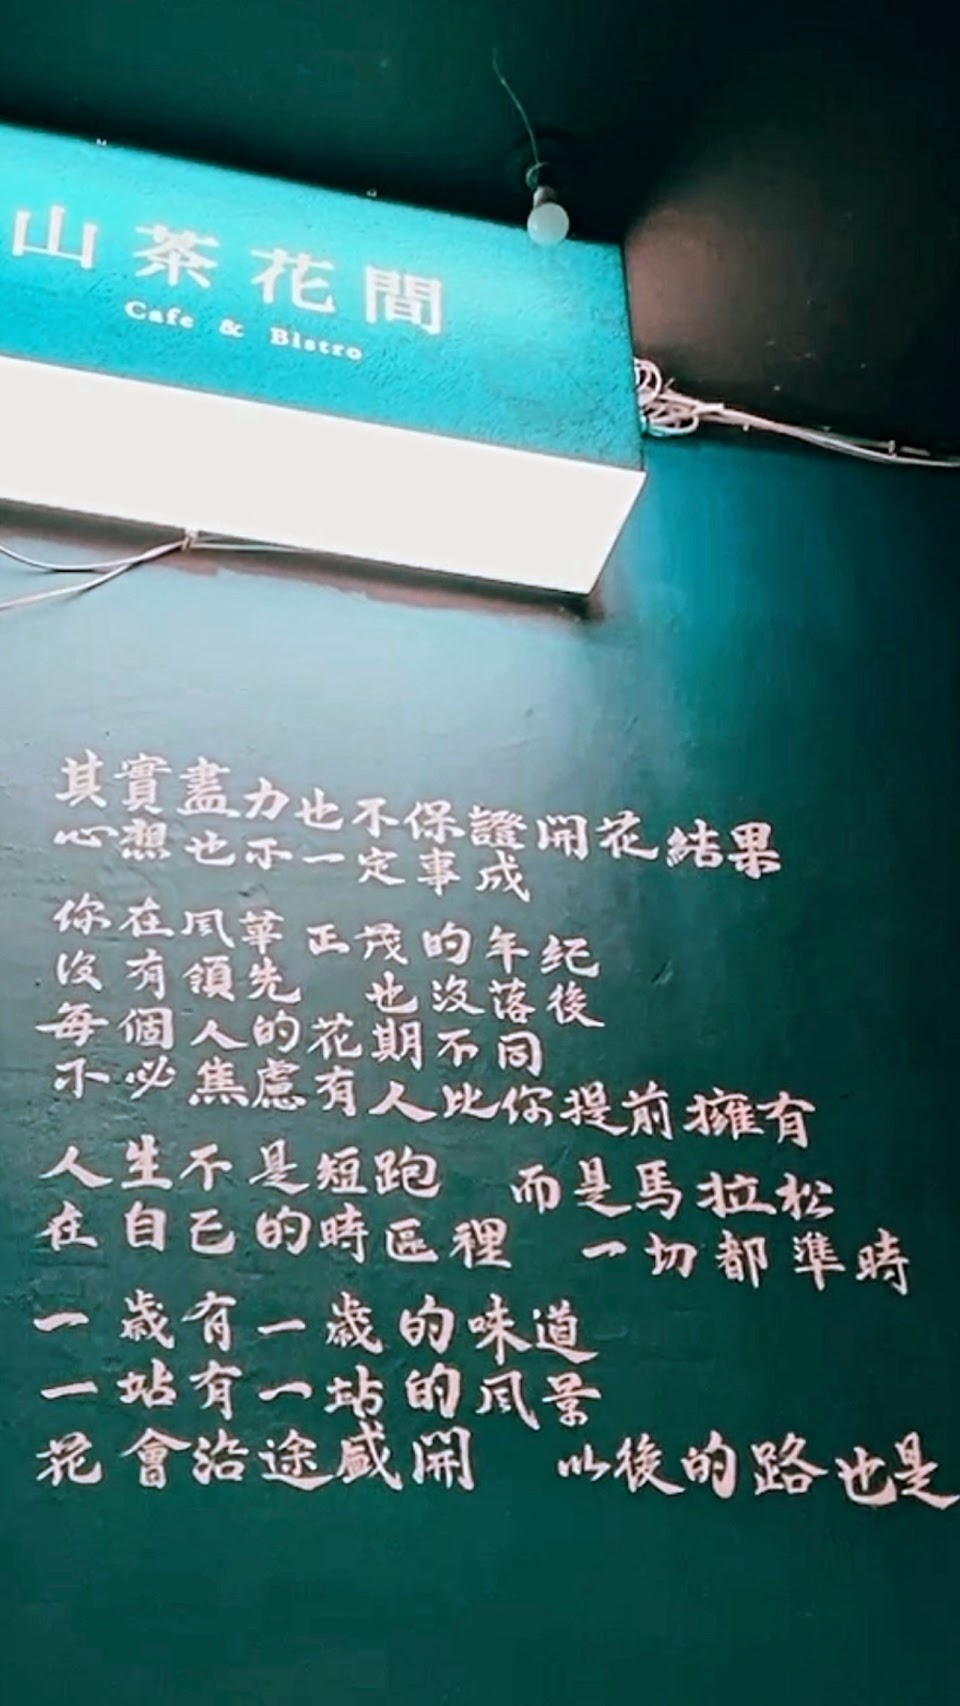 山茶花間
Cafe & Bistro
其實盡力也不保證開花結果
心想也不一定事成
你在風華正茂的年紀
沒有領先 也沒落後
每個人的花期不同
不必焦慮有人比你提前擁有
人生不是短跑 而是馬拉松
在自己的時區裡 一切都準時
一歲有一歲的味道
一站有一站的風景
花會沿途盛開 以後的路也是